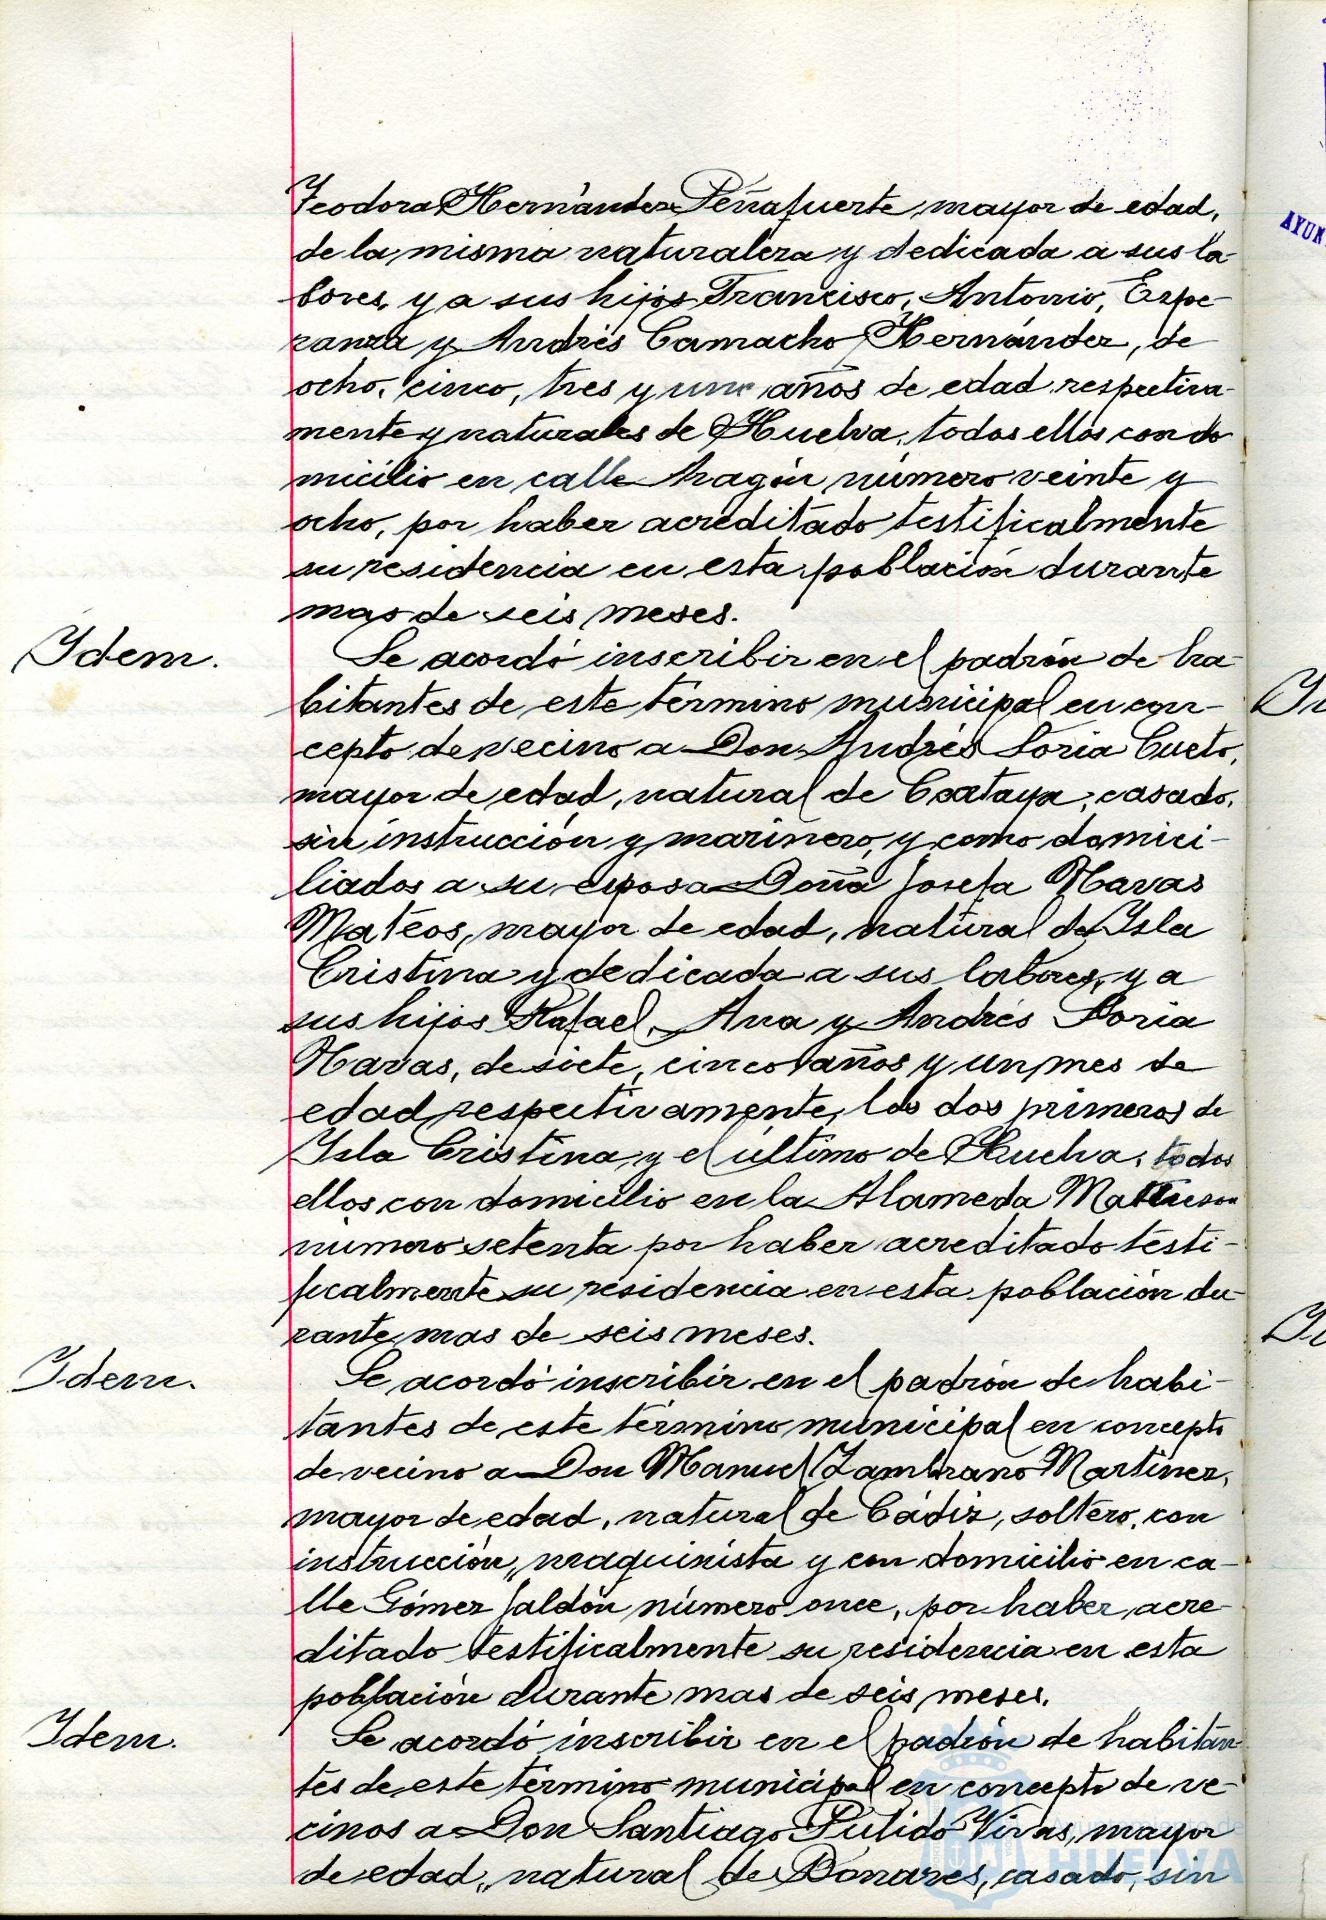 Teodora Hernández Peñafuerte, mayor de edad,
de la misma naturaleza y dedicada a sus la-
bores, y a sus hijos Francisco, Antonio, Espe-
ranza y Andrés Camacho Hernández, de
ocho, cinco, tres y un años de edad respectiva-
mente y naturales de Huelva, todos ellos con do
micilio en calle Aragón número veinte y
ocho, por haber acreditado testificalmente
su residencia en esta población durante
mas de seis meses.
Idem.
Se acordó inscribir en el padrón de ha-
bitantes de este término municipal en con-
cepto de vecino a Don Andrés Soria Cueto,
mayor de edad, natural de Cartaya, casado,
sin instrucción y marinero, y como domici-
liados a su esposa Doña Josefa Navas
Mateos, mayor de edad, natural de Isla
Cristina y dedicada a sus labores, y a
sus hijos Rafael, Ana y Andrés Soria
Navas, de siete, cinco años y un mes de
edad respectivamente, los dos primeros de
Isla Cristina, y el último de Huelva, todos
ellos con domicilio en la Alameda
número setenta por haber acreditado testi-
ficalmente su residencia en esta población du-
rante mas de seis meses.
Idem.
Se acordó inscribir en el padrón de habi-
tantes de este término municipal en concepto
de vecino a Don Manuel Zambrano Martínez,
mayor de edad, natural de Cádiz, soltero, con
instrucción, maquinista y con domicilio en ca-
lle Gómez Jaldón número once, por haber acre-
ditado testificalmente su residencia en esta
población durante mas de seis meses.
Idem.
Se acordó inscribir en el padrón de habitan-
tes de este término municipal en concepto de ve-
cinos a Don Santiago Pulido Vivas, mayor
de edad, natural de Bonares, casado, sin
HUELVA
AYUN